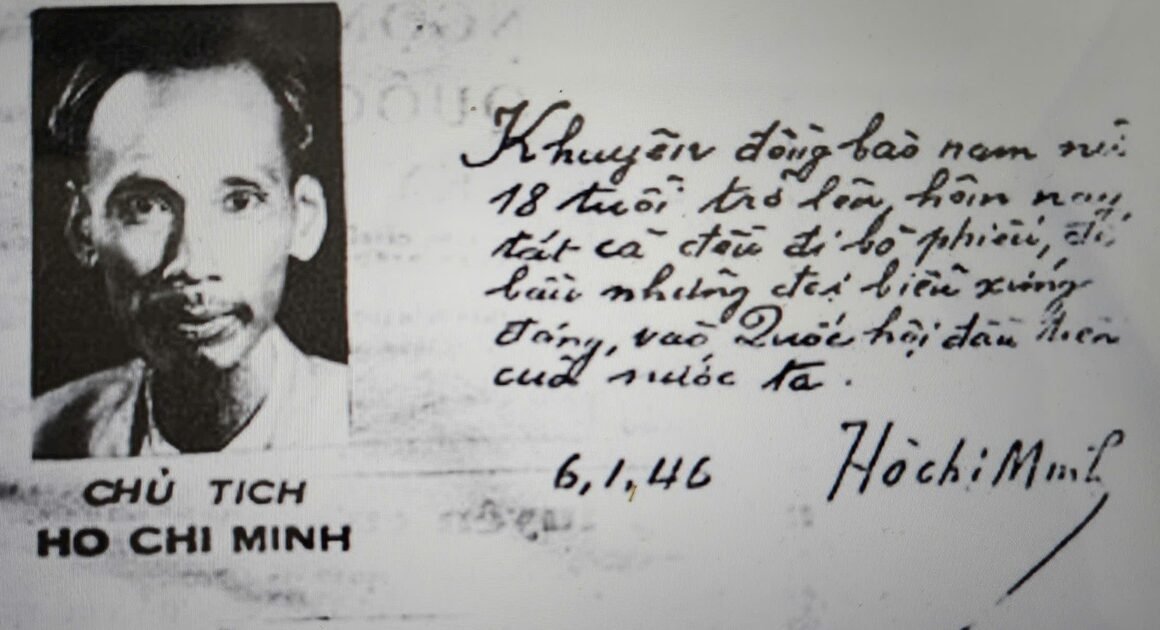 Khuyên đồng bào nam nữ
18 tuổi trở lên, hôm nay,
tất cả đều đi bỏ phiếu, để
bầu những đại biểu xứng
đáng, vào Quốc hội đầu tiên
của nước ta.
6,1,46
Hồ chí Minh
CHỦ TICH
HO CHI MINH